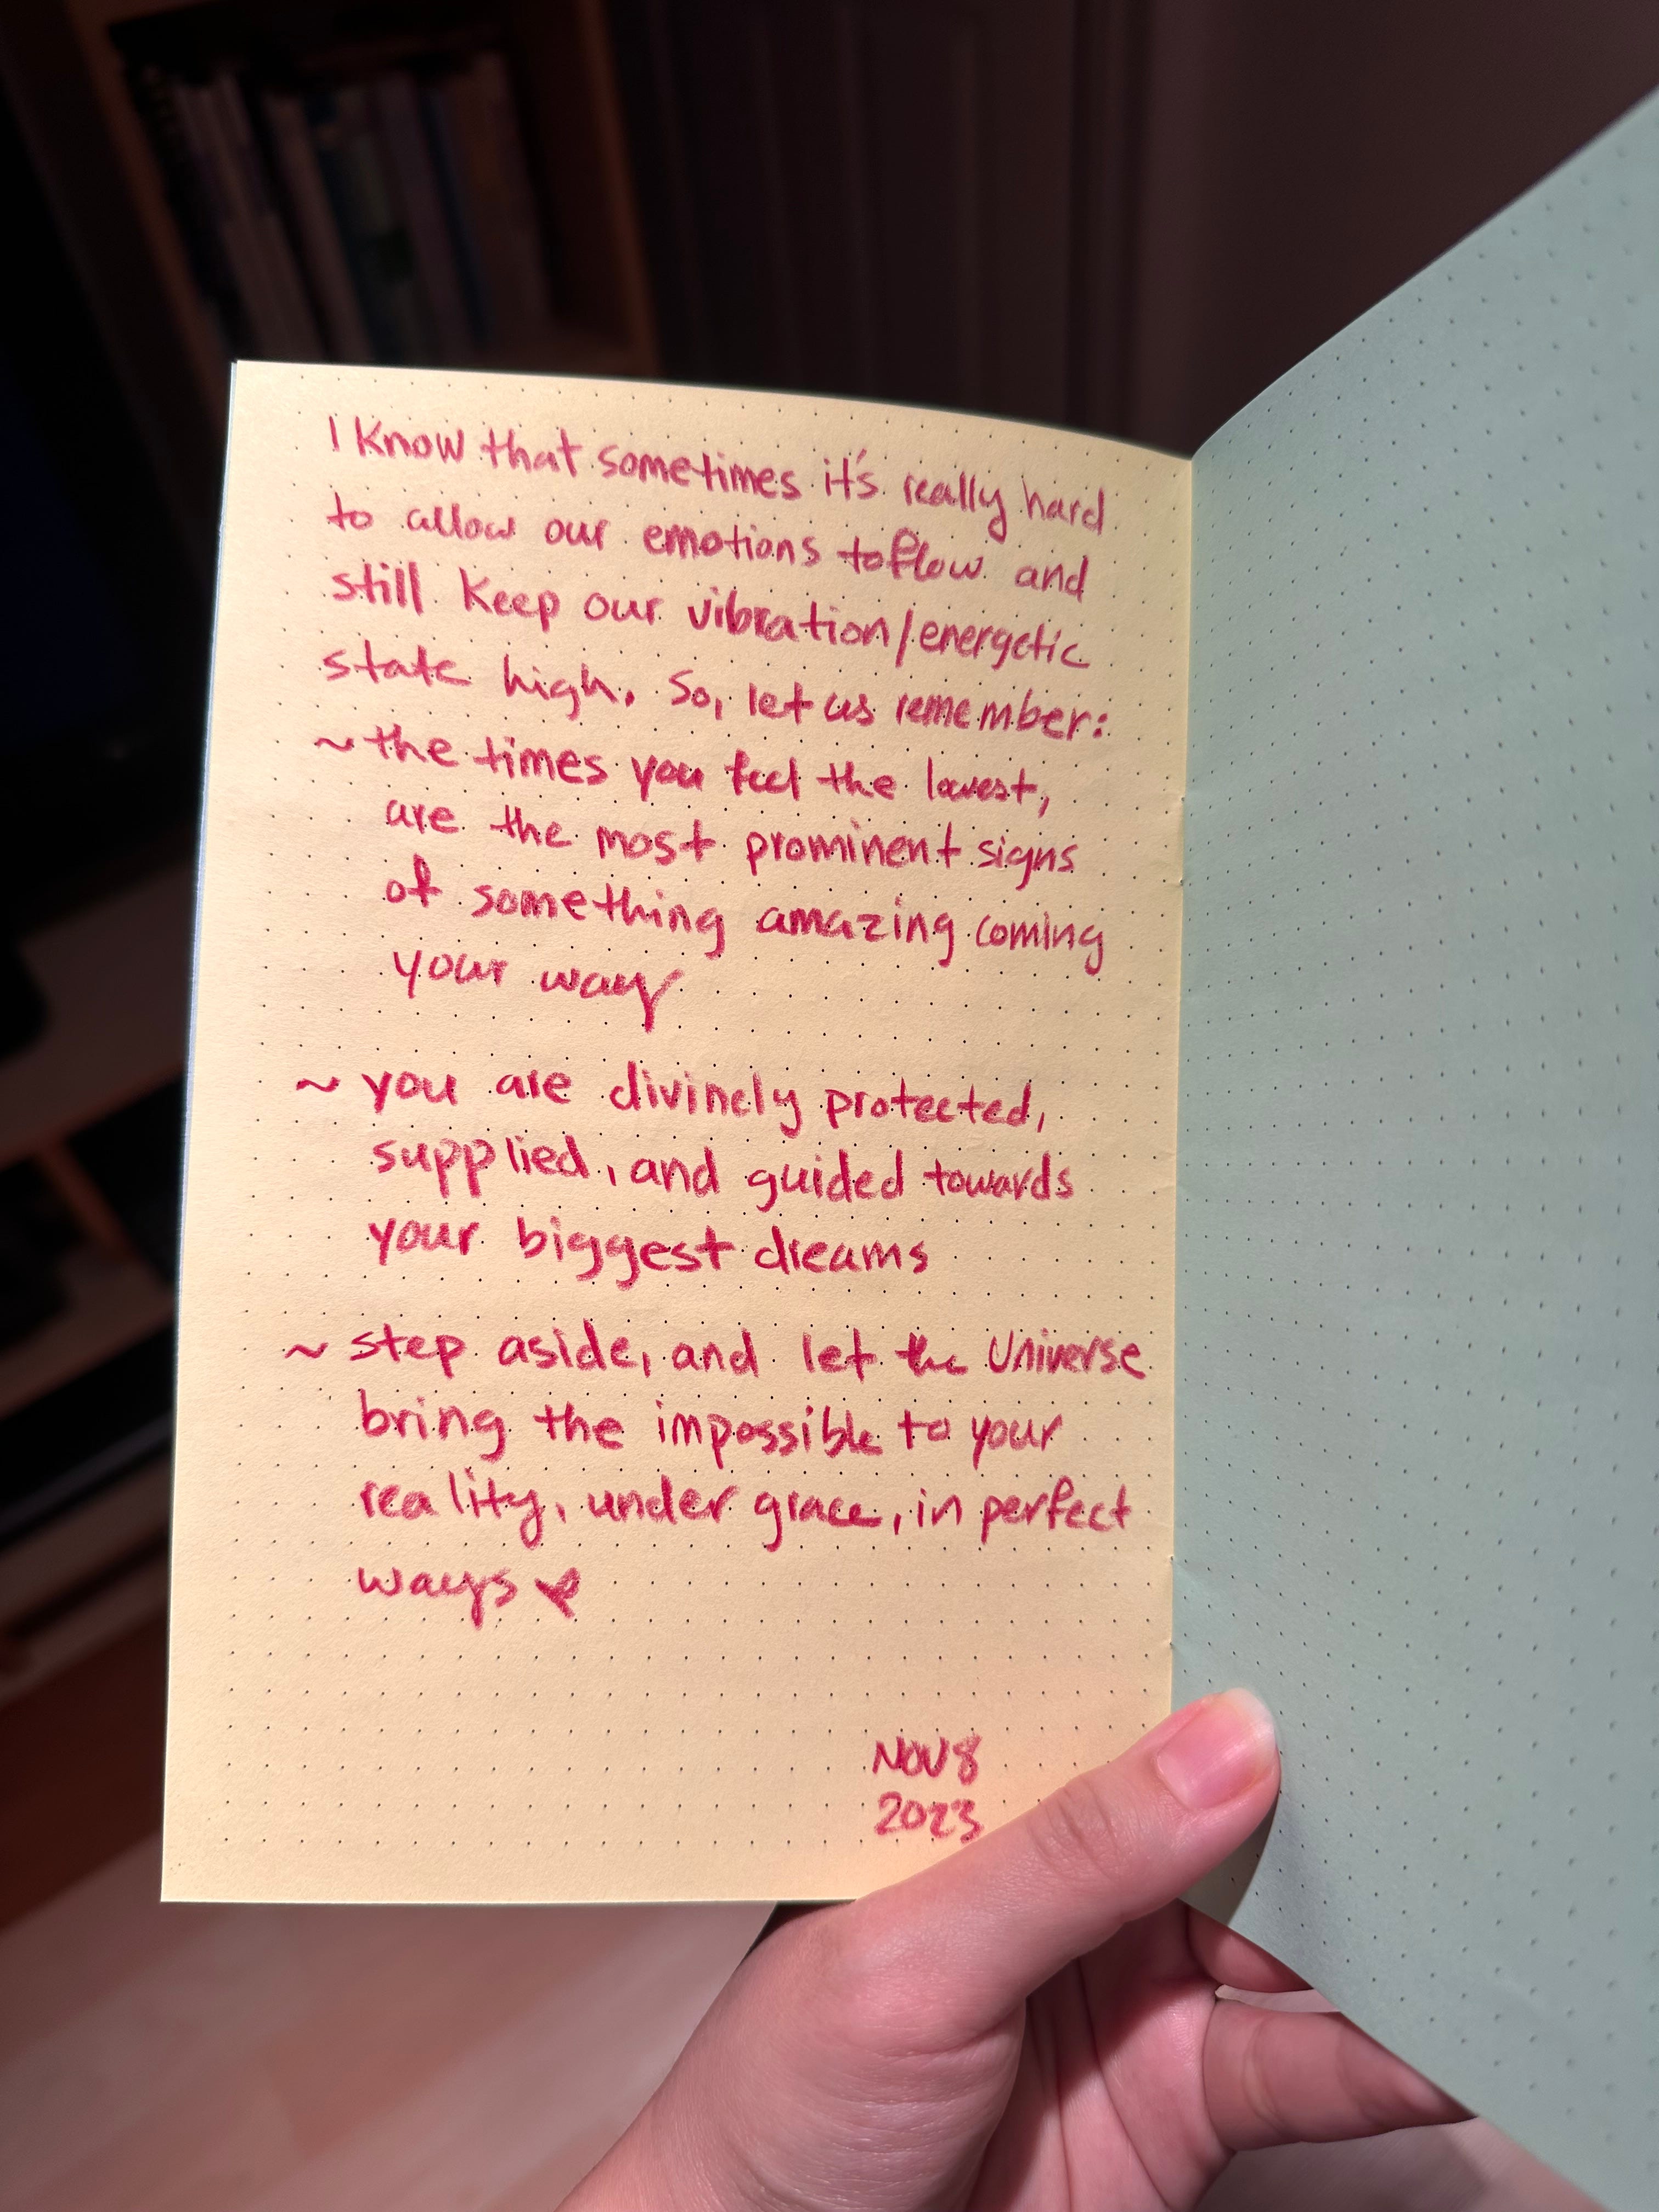 I know that sometimes it's really hard
to allow our emotions to flow and
still keep our vibration/energetic
state high. So, let us remember:
~ the times you feel the lowest,
are the most prominent signs
of something amazing coming
your way
~ you are divinely protected,
supplied, and guided towards
your biggest dreams
~ step aside, and let the Universe
bring the impossible to your
reality, under grace, in perfect
ways ♥
NOV 8
2023